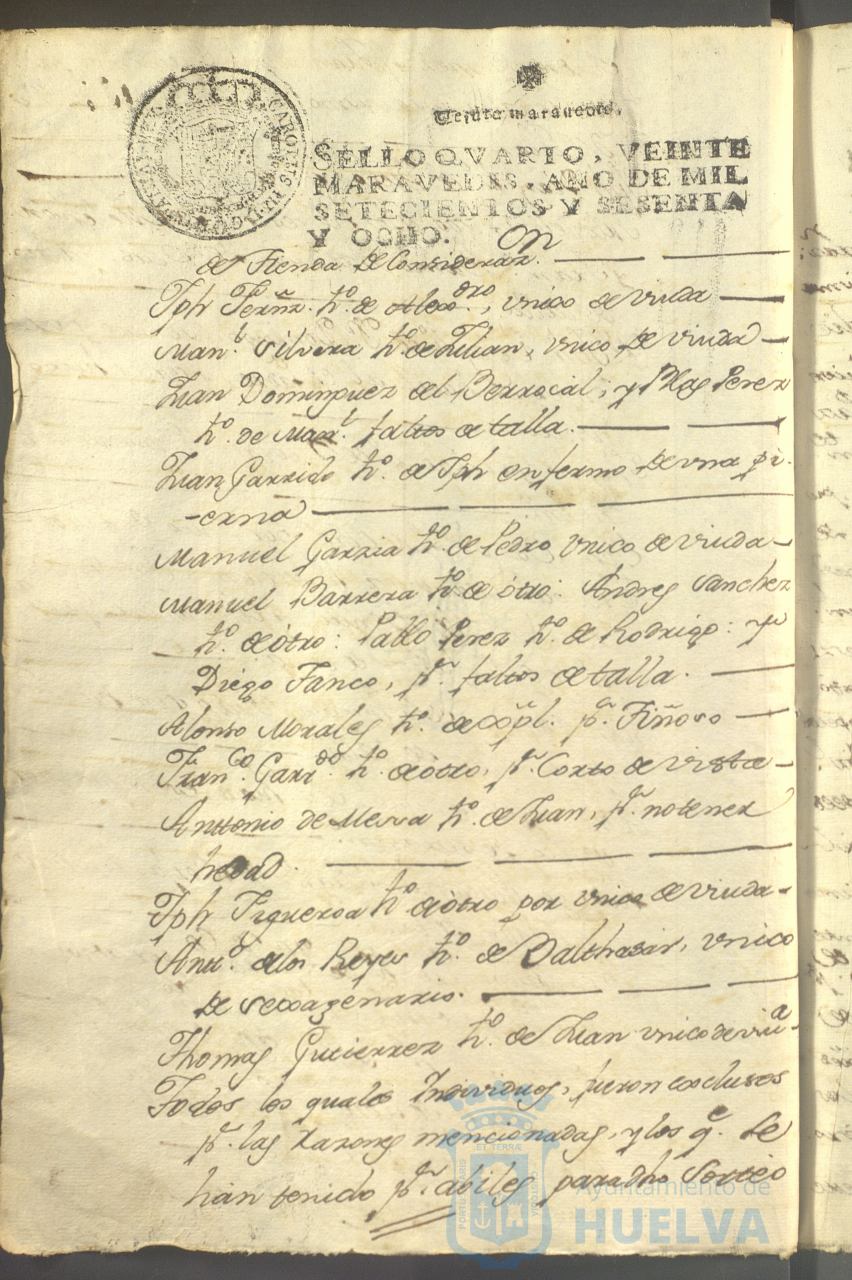 Veinte maravedis.
SELLO QVARTO, VEINTE
MARAVEDIS, AÑO DE MIL
SETECIENTOS Y SESENTA
Y OCHO.
de Tienda de Consideraz.on
Jph Fernz. ho. de otro, vnico de viuda
Man.l Silvera ho. de Julian, vnico de viuda
Juan Dominguez del Berrocal, y Blas Perez
ho. de Man.l faltos de talla.
Juan Garrido ho. de Jph enfermo de vna pi-
-erna
Manuel Garzia ho. de Pedro vnico de viuda
Manuel Barrera ho. de òtro: Andres Sanchez
ho. de òtro: Pablo Perez ho. de Rodrigo: y
Diego Fanco, pr. faltos de talla.
Alonso Morales ho. de pr. Tiñoso
Fran.co Garr.do ho. de òtro, pr. Corto de vista
Anttonio de Mesva ho. de Juan, pr. no tener
hedad.
Jph Figueroa ho. de òtro por vnico de viuda
Antt.o de los Reyes ho. de Balthasar, vnico
de sexagenario.
Thomas Gutierrez ho. de Juan vnico de viu.a
Todos los quales Individuos, fueron excluidos
pr. las razones mencionadas, y los q.e se
han tenido pr. abiles para dho Sorteo
Ayuntamiento de
HUELVA